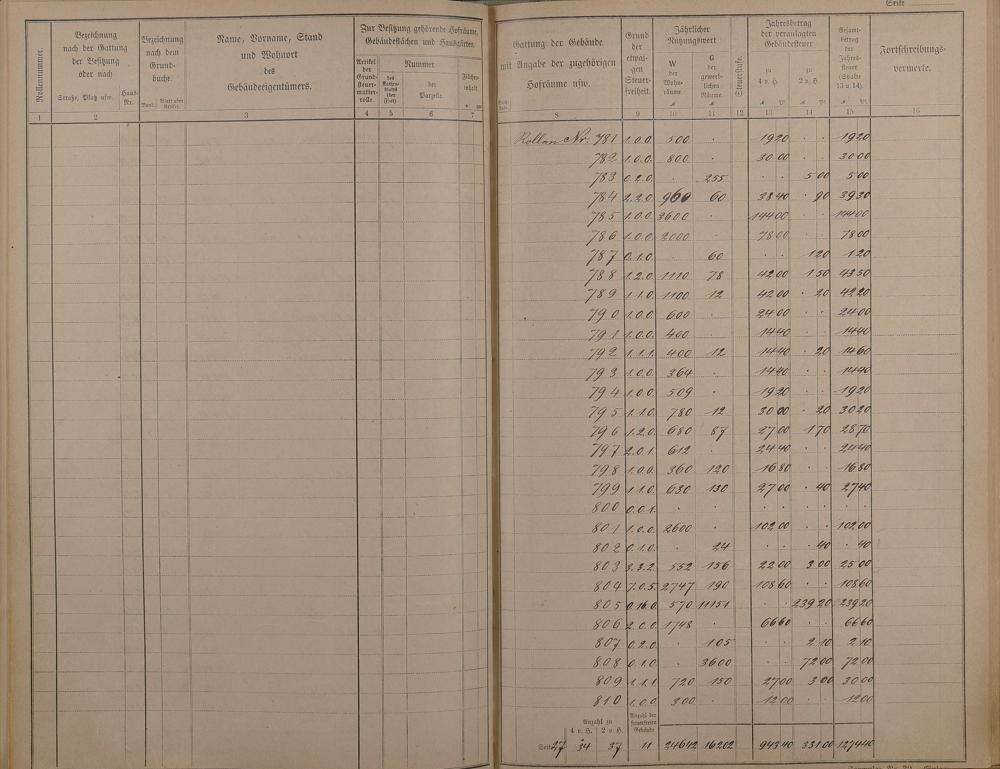 Seite
Rollennummer.
Bezeichnung
nach der Gattung
der Besitzung
oder nach
Straße, Platz usw.
Haus-
Nr.
Bezeichnung
nach dem
Grund-
buche.
Name, Vorname, Stand
und Wohnort
des
Gebäudeeigentümers.
Zur Besitzung gehörende Hofräume,
Gebäudeflächen und Hausgärten.
Artikel
der
Grund-
steuer-
mutter-
rolle.
Nummer
des
der
Parzelle.
Flächen-
inhalt
Gattung der Gebäude
mit Angabe der zugehörigen
Hofräume usw.
Grund
der
etwai-
gen
Steuer-
freiheit.
Jährlicher
Nutzungswert
W
der
Wohn-
räume
G
der
gewerb-
lichen
Räume.
Steuerstufe.
Jahresbetrag
der veranlagten
Gebäudesteuer
zu
4 v. H.
zu
2 v. H.
Gesamt-
betrag
der
Jahres-
steuer
(Spalte
13 u. 14).
Fortschreibungs-
vermerke.
1 2 3 4 5 6 7 8 9 10 11 12 13 14 15 16
Rollen Nr. 781 1.0.0. 500 . 19 20 . . 19 20
782 1.0.0. 800 . 30 00 . . 30 00
783 0.2.0. . 255 . . 5 00 5 00
784 2.2.0. 960 60 38 40 . 90 39 30
785 1.0.0. 3600 . 144 00 . . 144 00
786 1.0.0. 2000 . 78 00 . . 78 00
787 0.1.0. . 60 . . 1 20 1 20
788 1.2.0. 1110 78 42 00 1 50 43 50
789 1.1.0. 1100 12 42 00 . 20 42 20
790 1.0.0. 600 . 24 00 . . 24 00
791 1.0.0. 400 . 14 40 . . 14 40
792 1.1.1. 400 12 14 40 . 20 14 60
793 1.0.0. 364 . 14 40 . . 14 40
794 1.0.0. 509 . 19 20 . . 19 20
795 1.1.0. 780 12 30 00 . 20 30 20
796 1.2.0. 680 87 27 00 1 70 28 70
797 2.0.1. 612 . 24 40 . . 24 40
798 1.0.0. 360 120 16 80 . . 16 80
799 1.1.0. 680 130 27 00 . 40 27 40
800 0.0.1. . . . . . . . .
801 1.0.0. 2600 . 102 00 . . 102 00
802 0.1.0. . 24 . . . 40 . 40
803 8.3.2. 552 156 22 00 3 00 25 00
804 7.0.5. 2747 190 108 60 . . 108 60
805 0.16.0. 570 11151 . . 239 20 239 20
806 2.0.0. 1748 . 66 60 . . 66 60
807 0.2.0. . 105 . . 2 10 2 10
808 0.1.0. . 3600 . . 72 00 72 00
809 1.1.1. 720 150 27 00 3 00 30 00
810 1.0.0. 300 . 12 00 . . 12 00
Anzahl zu
4 v. H. 2 v. H.
Anzahl der
steuerfreien
Gebäude
Seite 27 34 37 11 24642 16202 943 40 331 00 1274 40